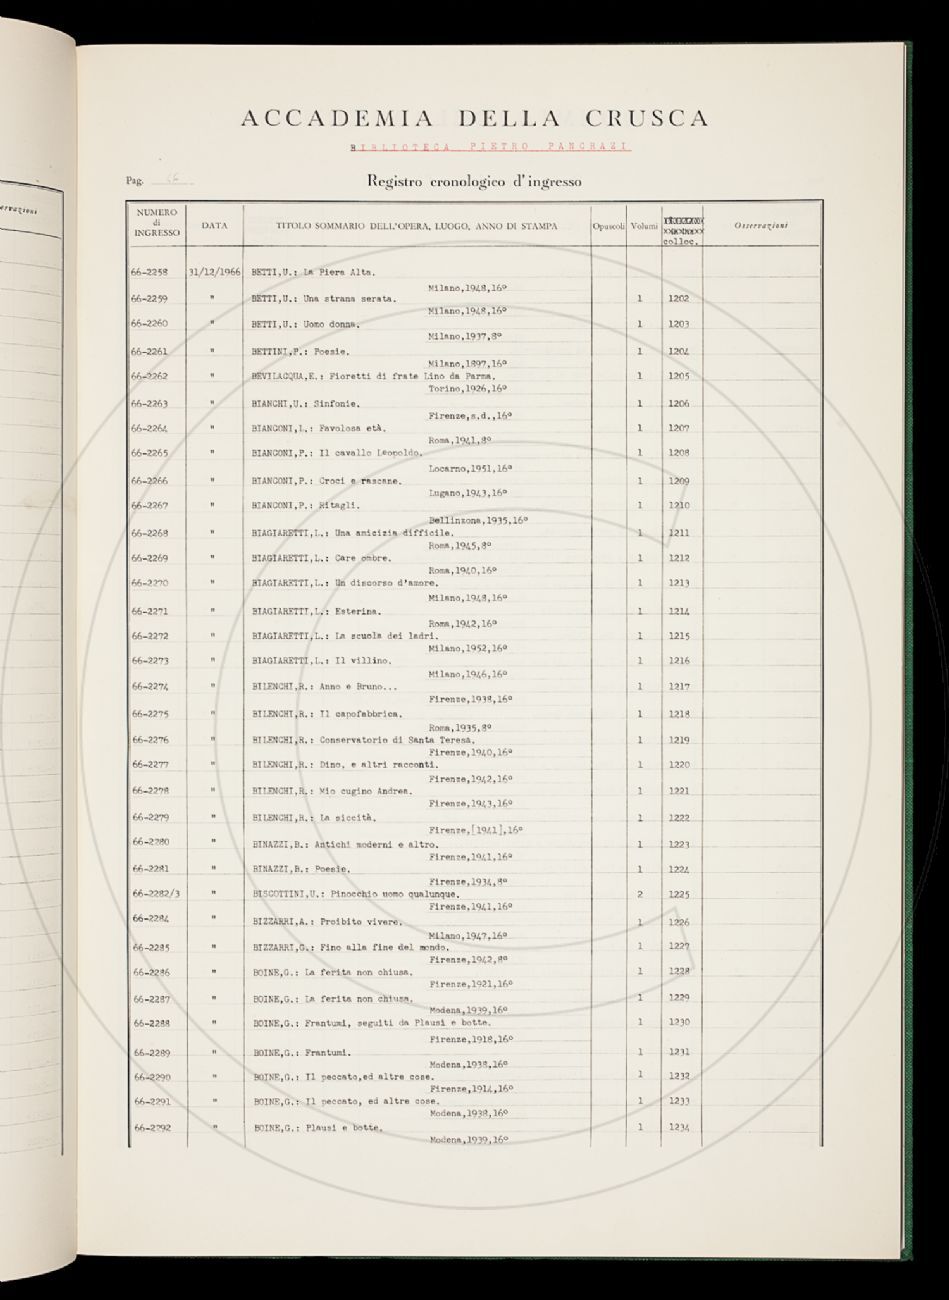 ervazioni
ACCADEMIA DELLA CRUSCA
BIBLIOTECA PIETRO PANCRAZI
Pag. 66
Registro cronologico d'ingresso
NUMERO di INGRESSO DATA TITOLO SOMMARIO DELL'OPERA, LUOGO, ANNO DI STAMPA Opuscoli Volumi colloc. Osservazioni
66-2258 31/12/1966 BETTI,U.: La Piera Alta.
Milano,1948,16º
66-2259 " BETTI,U.: Una strana serata. 1 1202
Milano,1948,16º
66-2260 " BETTI,U.: Uomo donna. 1 1203
Milano,1937,8º
66-2261 " BETTINI,P.: Poesie. 1 1204
Milano,1897,16º
66-2262 " BEVILACQUA,E.: Fioretti di frate Lino da Parma. 1 1205
Torino,1926,16º
66-2263 " BIANCHI,U.: Sinfonie. 1 1206
Firenze,s.d.,16º
66-2264 " BIANCONI,L.: Favolosa età. 1 1207
Roma,1941,8º
66-2265 " BIANCONI,P.: Il cavallo Leopoldo. 1 1208
Locarno,1951,16º
66-2266 " BIANCONI,P.: Croci e rascane. 1 1209
Lugano,1943,16º
66-2267 " BIANCONI,P.: Ritagli. 1 1210
Bellinzona,1935,16º
66-2268 " BIAGIARETTI,L.: Una amicizia difficile. 1 1211
Roma,1945,8º
66-2269 " BIAGIARETTI,L.: Care ombre. 1 1212
Roma,1940,16º
66-2270 " BIAGIARETTI,L.: Un discorso d'amore. 1 1213
Milano,1948,16º
66-2271 " BIAGIARETTI,L.: Esterina. 1 1214
Roma,1942,16º
66-2272 " BIAGIARETTI,L.: La scuola dei ladri. 1 1215
Milano,1952,16º
66-2273 " BIAGIARETTI,L.: Il villino. 1 1216
Milano,1946,16º
66-2274 " BILENCHI,R.: Anno e Bruno... 1 1217
Firenze,1938,16º
66-2275 " BILENCHI,R.: Il capofabbrica. 1 1218
Roma,1935,8º
66-2276 " BILENCHI,R.: Conservatorio di Santa Teresa. 1 1219
Firenze,1940,16º
66-2277 " BILENCHI,R.: Dino, e altri racconti. 1 1220
Firenze,1942,16º
66-2278 " BILENCHI,R.: Mio cugino Andrea. 1 1221
Firenze,1943,16º
66-2279 " BILENCHI,R.: La siccità. 1 1222
Firenze,[1941],16º
66-2280 " BINAZZI,B.: Antichi moderni e altro. 1 1223
Firenze,1941,16º
66-2281 " BINAZZI,B.: Poesie. 1 1224
Firenze,1934,8º
66-2282/3 " BISCOTTINI,U.: Pinocchio uomo qualunque. 2 1225
Firenze,1941,16º
66-2284 " BIZZARRI,A.: Proibito vivere. 1 1226
Milano,1947,16º
66-2285 " BIZZARRI,G.: Fino alla fine del mondo. 1 1227
Firenze,1942,8º
66-2286 " BOINE,G.: La ferita non chiusa. 1 1228
Firenze,1921,16º
66-2287 " BOINE,G.: La ferita non chiusa. 1 1229
Modena,1939,16º
66-2288 " BOINE,G.: Frantumi, seguiti da Plausi e botte. 1 1230
Firenze,1918,16º
66-2289 " BOINE,G.: Frantumi. 1 1231
Modena,1938,16º
66-2290 " BOINE,G.: Il peccato,ed altre cose. 1 1232
Firenze,1914,16º
66-2291 " BOINE,G.: Il peccato, ed altre cose. 1 1233
Modena,1938,16º
66-2292 " BOINE,G.: Plausi e botte. 1 1234
Modena,1939,16º